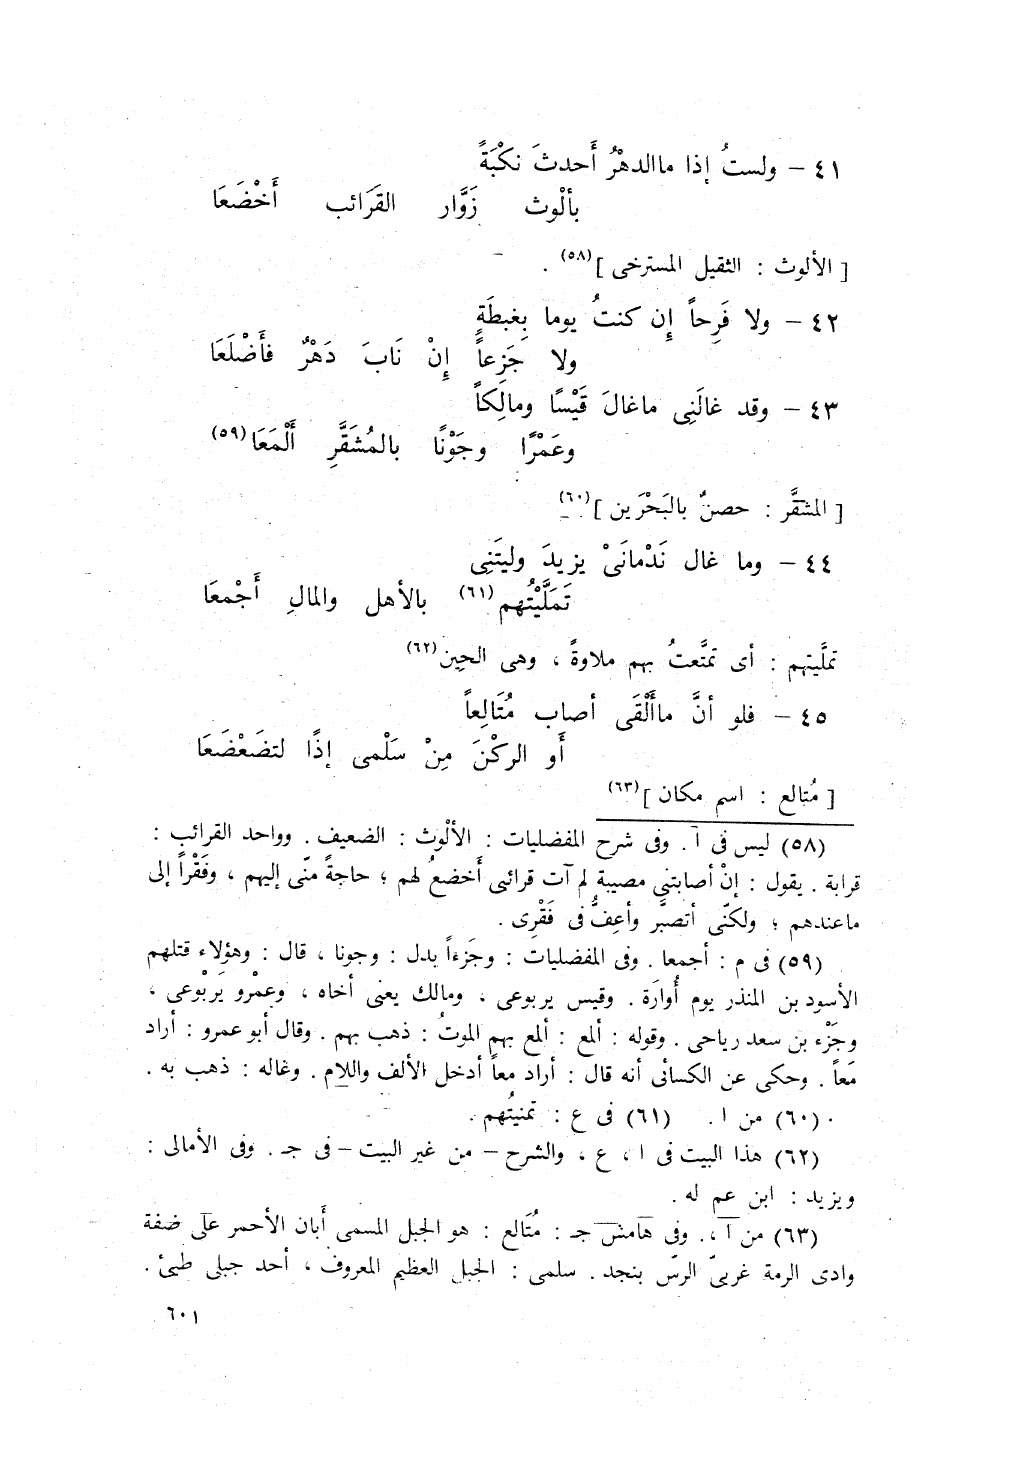 ٤١ – ولستُ إذا ماالدهْرُ أَحدثَ نكْبَةً
بألْوث زَوَّار القَرَائب أَخْضَعَا
[ الألوث : الثقيل المسترخى ](٥٨) .
٤٢ – ولا فَرِحاً إِن كنتُ يوما بِغبطَةٍ
ولا جَزِعاً إِنْ نَابَ دَهْرٌ فأَضْلَعَا
٤٣ – وقد غالَنِى ماغالَ قَيْسًا ومالِكاً
وعَمْرًا وجَوْنًا بالمُشَقَّرِ أَلْمَعَا(٥٩)
[ المشقَّر : حصنٌ بالبَحْرَين ](٦٠)
٤٤ – وما غال نَدْمانَىْ يزيدَ وليتَنِى
تَمَلَّيْتُهم(٦١) بالأهل والمالِ أَجْمعَا
تملَّيتهم : أى تمتَّعتُ بهم ملاوةً ، وهى الحِين(٦٢)
٤٥ – فلو أنَّ ماأَلْقَى أصاب مُتَالِعاً
أَو الركْنَ مِنْ سَلْمى إذًا لتضَعْضَعَا
[ مُتالع : اسم مكان ](٦٣)
(٥٨) ليس فى آ . وفى شرح المفضليات : الألْوث : الضعيف . وواحد القرائب :
قرابة . يقول : إنْ أصابتنى مصيبة لم آت قرائبى أَخضعُ لهم ؛ حاجةً منّى إليهم ، وفَقْراً إلى
ماعندهم ؛ ولكنّى أتصبَّر وأعِفُّ فى فَقْرِى .
(٥٩) فى م : أجمعا . وفى المفضليات : وجَزءاً بدل : وجونا ، قال : وهؤلاء قتلهم
الأسود بن المنذر يوم أُوارَة . وقيس يربوعى ، ومالك يعنى أخاه ، وعمْرو يَربْوعى ،
وجَزْء بن سعد رياحى . وقوله : ألمع : ألمع بهم الموتُ : ذهب بهم . وقال أبو عمرو : أراد
مَعاً . وحكى عن الكسائى أنه قال : أراد معاً أدخل الألف واللام . وغاله : ذهب به .
(٦٠) من ا . (٦١) فى ع : تمنيتُهم .
(٦٢) هذا البيت فى ا ، ع ، والشرح – من غير البيت – فى جـ . وفى الأمالى :
ويزيد : ابن عم له .
(٦٣) من آ ، . وفى هامش جـ : مُتَالع : هو الجبل المسمى أَبان الأحمر على ضفة
وادى الرمة غربىّ الرسّ بنجد . سلمى : الجبل العظيم المعروف ، أحد جبلى طيئ .
٦٠١